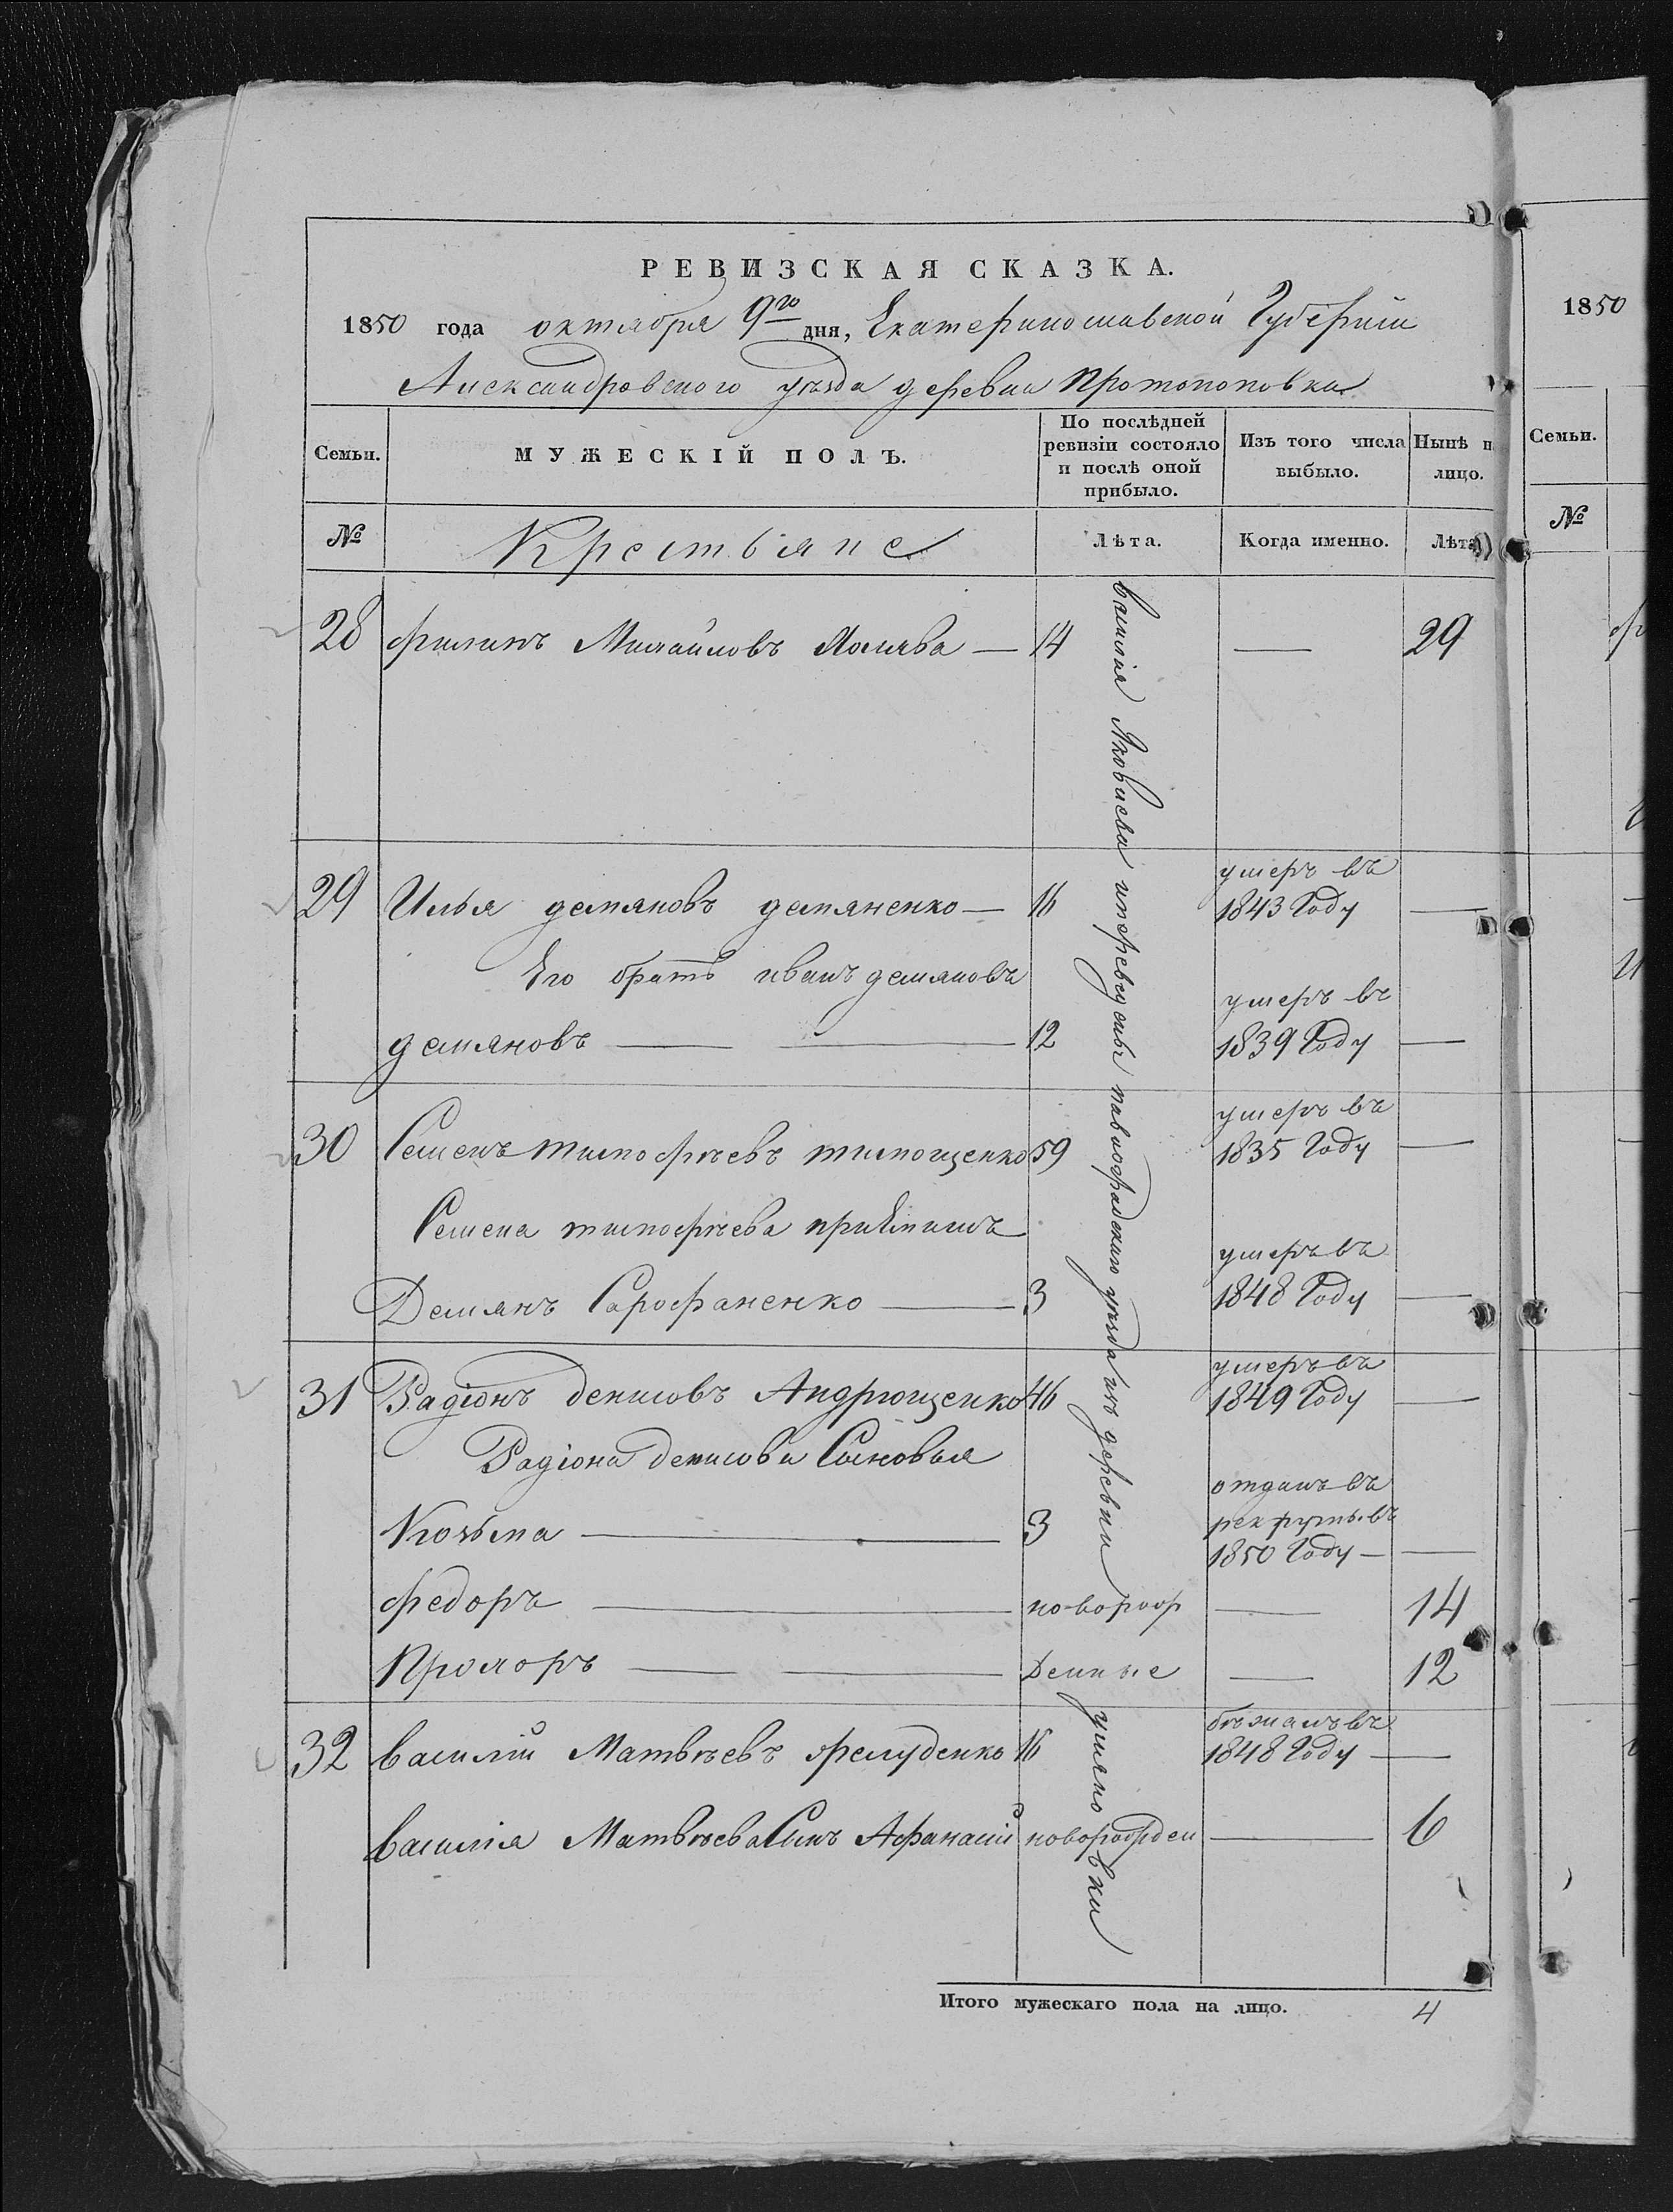 РЕВИЗСКАЯ СКАЗКА.
1850 года октября 9го дня, Екатеринославской Губернии
Александровского уезда деревни Протопоповки
Семьи.
МУЖЕСКІЙ ПОЛЪ.
По послѣдней ревизіи состояло и послѣ оной прибыло.
Изъ того числа выбыло.
Нынѣ н лицо.
№
Крестьяне
Лѣта.
Когда именно.
Лѣта
28 Филипъ Михайловъ — 14 — 29
29 Илья демяновъ демяненко — 16 умеръ въ 1843 Году —
Его братъ иванъ демяновъ
демяновъ — — 12 умеръ въ 1839 Году —
30 Семенъ тимофѣевъ тимощенко 59 умеръ въ 1835 Году —
Семена тимофѣева
Демянъ Сарофаненко — 3 умеръ въ 1848 Году —
31 Радіонъ денисовъ Андрющенко 46 умеръ въ 1849 Году —
Радіона денисова Сыновья
Козьма — 3 отданъ въ рекруты въ 1850 Году — —
федоръ — новорож — 14
Прохоръ — — денные — 12
32 василій Матвѣевъ 16 бѣжалъ въ 1848 Году —
василія Матвѣева Сынъ Афанасій новорожден — 6
василія Яковлева переведены павлоградскаго уѣзда изъ деревни
Итого мужескаго пола на лицо. 4
1850
Семьи.
№